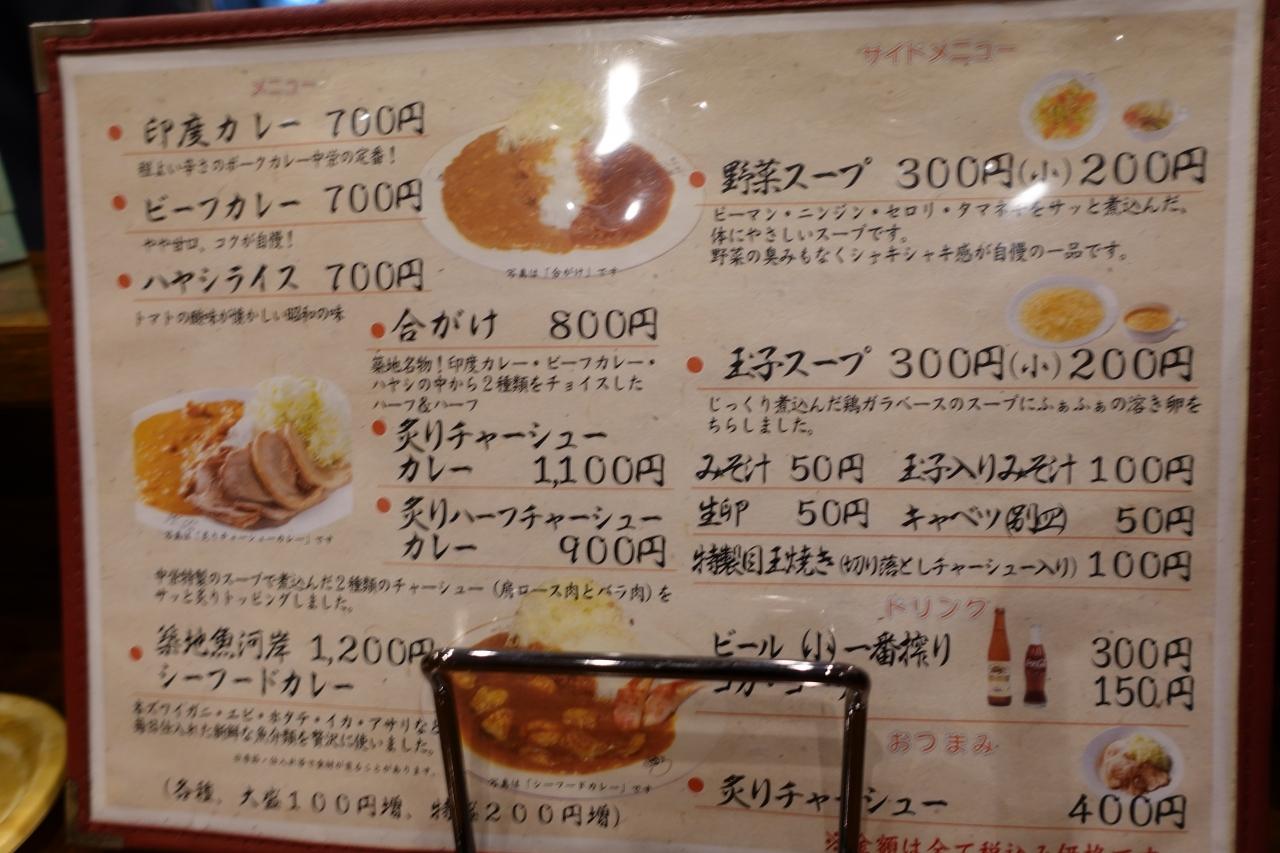 メニュー
印度カレー 700円
程よい辛さのポークカレー中栄の定番！
ビーフカレー 700円
やや甘口。コクが自慢！
ハヤシライス 700円
トマトの酸味が懐かしい昭和の味
写真は「合がけ」です
合がけ 800円
築地名物！印度カレー・ビーフカレー・
ハヤシの中から２種類をチョイスした
ハーフ＆ハーフ
炙りチャーシュー
カレー 1,100円
炙りハーフチャーシュー
カレー 900円
写真は「炙りチャーシューカレー」です
中栄特製のスープで煮込んだ２種類のチャーシュー（肩ロース肉とバラ肉）を
サッと炙りトッピングしました。
築地魚河岸 1,200円
シーフードカレー
本ズワイガニ・エビ・ホタテ・イカ・アサリなど
毎日仕入れた新鮮な魚介類を贅沢に使いました。
※季節・仕入れ等で食材が変ることがあります。
写真は「シーフードカレー」です
（各種、大盛１００円増、特盛２００円増）
サイドメニュー
野菜スープ 300円（小）200円
ピーマン・ニンジン・セロリ・タマネギをサッと煮込んだ、
体にやさしいスープです。
野菜の臭みもなくシャキシャキ感が自慢の一品です。
玉子スープ 300円（小）200円
じっくり煮込んだ鶏ガラベースのスープにふぁふぁの溶き卵を
ちらしました。
みそ汁 50円 玉子入りみそ汁 100円
生卵 50円 キャベツ（別皿） 50円
特製目玉焼き（切り落としチャーシュー入り） 100円
ドリンク
ビール（小）一番搾り 300円
コカ・コーラ 150円
おつまみ
炙りチャーシュー 400円
※金額は全て税込み価格です